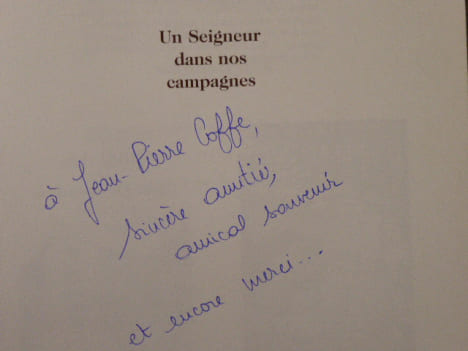 Un Seigneur
dans nos
campagnes
à Jean-Pierre Coffe,
sincère amitié,
amical souvenir
et encore merci...